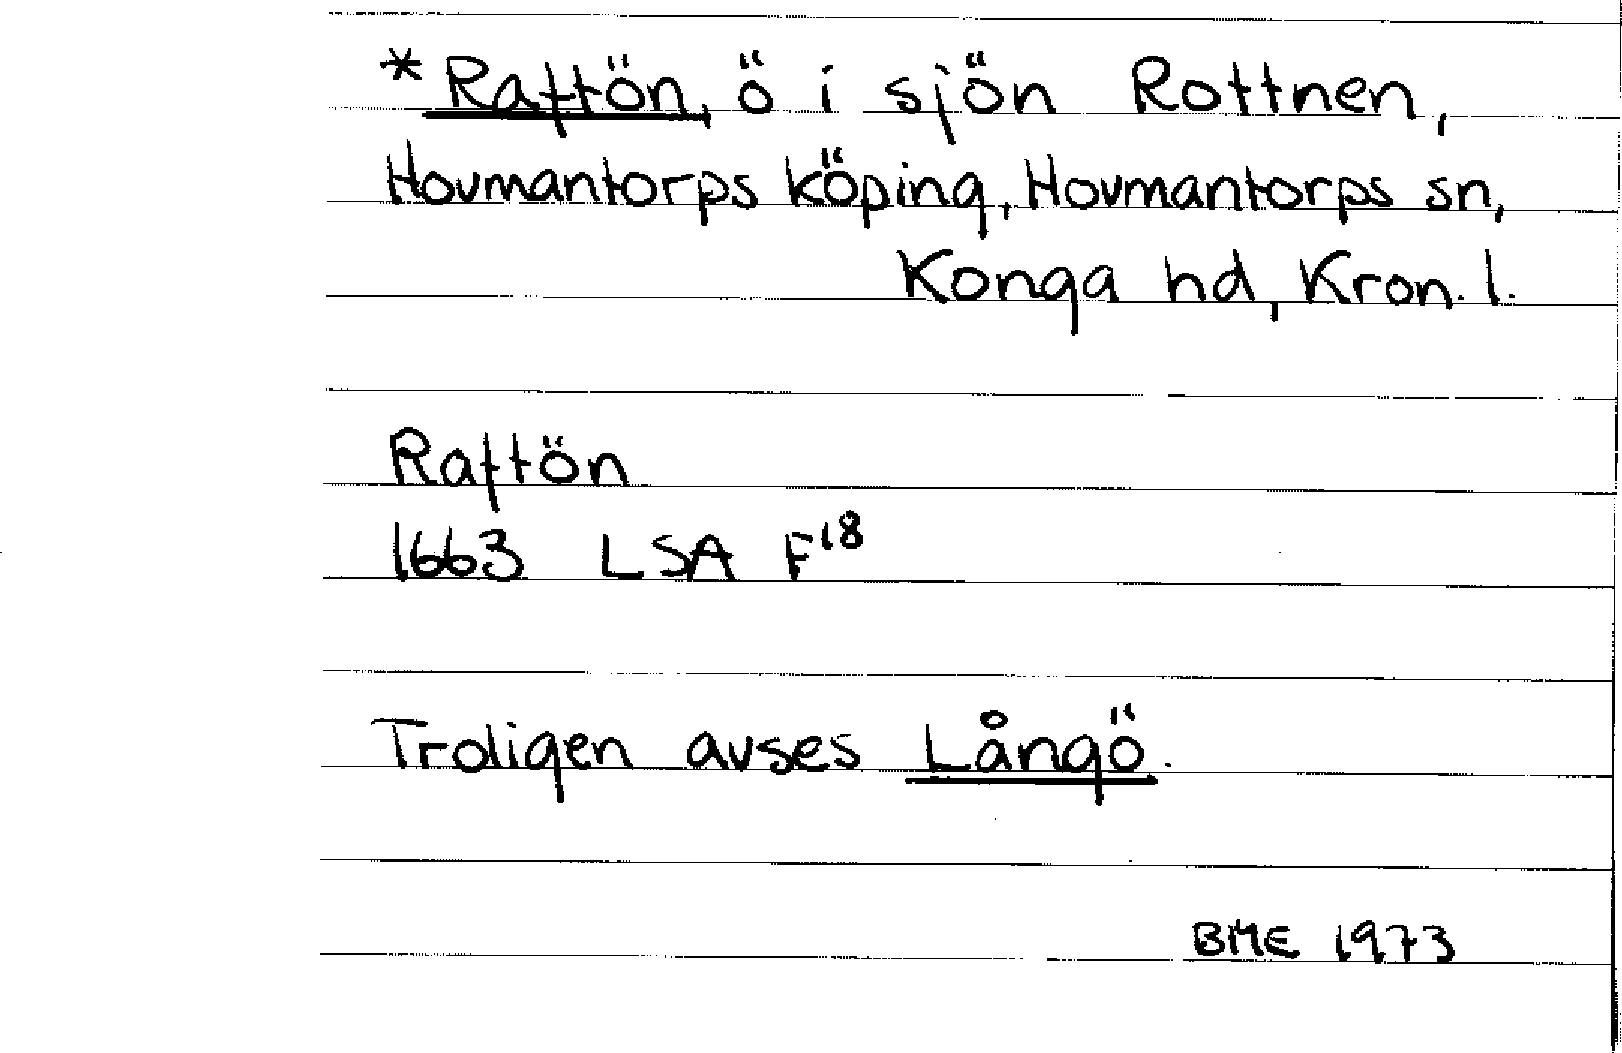 *Raftön, ö i sjön Rottnen,
Hovmantorps köping, Hovmantorps sn,
Konga hd, Kron. l.
Raftön
1663 LSA F18
Troligen avses Långö.
BME 1973